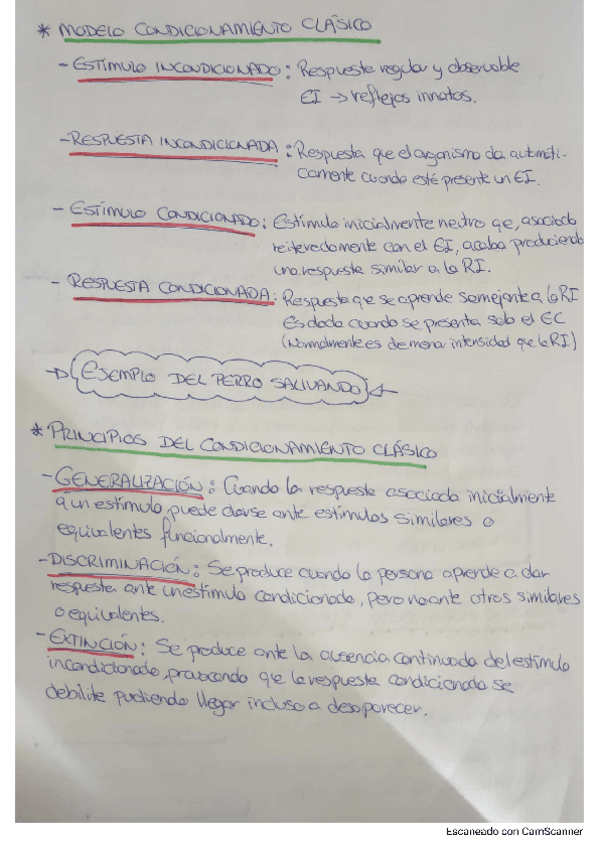 * MODELO CONDICIONAMIENTO CLÁSICO
- ESTÍMULO INCONDICIONADO: Respuesta regular y observable
EI → reflejos innatos.
- RESPUESTA INCONDICIONADA: Respuesta que el organismo da automáti-
camente cuando esté presente un EI.
- ESTÍMULO CONDICIONADO: Estímulo inicialmente neutro que, asociado
reiteradamente con el EI, acaba produciendo
una respuesta similar a la RI.
- RESPUESTA CONDICIONADA: Respuesta que se aprende semejante a la RI
Es dada cuando se presenta solo el EC
(Normalmente es de menor intensidad que la RI)
→ EJEMPLO DEL PERRO SALIVANDO ←
* PRINCIPIOS DEL CONDICIONAMIENTO CLÁSICO
- GENERALIZACIÓN: Cuando la respuesta asociada inicialmente
a un estímulo, puede darse ante estímulos similares o
equivalentes funcionalmente.
- DISCRIMINACIÓN: Se produce cuando la persona aprende a dar
respuesta ante un estímulo condicionado, pero no ante otros similares
o equivalentes.
- EXTINCIÓN: Se produce ante la ausencia continuada del estímulo
incondicionado, provocando que la respuesta condicionada se
debilite pudiendo llegar incluso a desaparecer.
Escaneado con CamScanner